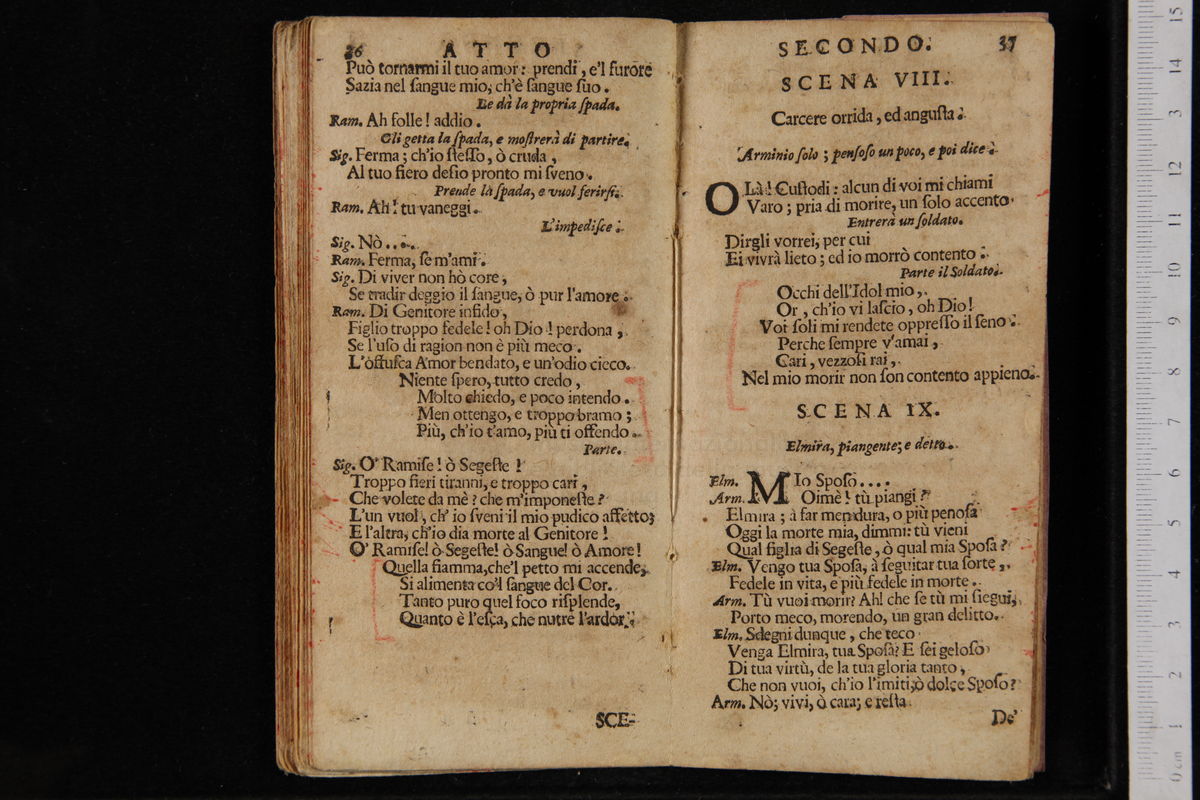 36 ATTO
Può tornarmi il tuo amor: prendi, e'l furore
Sazia nel ſangue mio, ch'è ſangue ſuo.
Le dà la propria ſpada.
Ram. Ah folle! addio.
Gli getta la ſpada, e moſtrerà di partire.
Sig. Ferma; ch'io ſteſſo, ò cruda,
Al tuo fiero deſio pronto mi ſveno.
Prende la ſpada, e vuol ferirſi.
Ram. Ah! tu vaneggi.
L'impediſce.
Sig. Nò....
Ram. Ferma, ſe m'ami.
Sig. Di viver non hò core,
Se tradir deggio il ſangue, ò pur l'amore.
Ram. Di Genitore infido,
Figlio troppo fedele! oh Dio! perdona,
Se l'uſo di ragion non è più meco.
L'offuſca Amor bendato, e un'odio cieco.
Niente ſpero, tutto credo,
Molto chiedo, e poco intendo.
Men ottengo, e troppo bramo;
Più, ch'io t'amo, più ti offendo.
Parte.
Sig. O' Ramiſe! ò Segeſte!
Troppo fieri tiranni, e troppo cari,
Che volete da mè? che m'imponeſte?
L'un vuol, ch'io ſveni il mio pudico affetto;
E l'altra, ch'io dia morte al Genitore!
O' Ramiſe! ò Segeſte! ò Sangue! ò Amore!
Quella fiamma, che'l petto mi accende,
Si alimenta co'l ſangue del Cor.
Tanto puro quel foco riſplende,
Quanto è l'eſca, che nutre l'ardor.
SCE-
SECONDO. 37
SCENA VIII.
Carcere orrida, ed anguſta.
Arminio ſolo; penſoſo un poco, e poi dice.
OLà! Cuſtodi: alcun di voi mi chiami
Varo; pria di morire, un ſolo accento
Entrerà un ſoldato.
Dirgli vorrei, per cui
Ei vivrà lieto; ed io morrò contento.
Parte il Soldato.
Occhi dell'Idol mio,
Or, ch'io vi laſcio, oh Dio!
Voi ſoli mi rendete oppreſſo il ſeno.
Perche ſempre v'amai,
Cari, vezzoſi rai,
Nel mio morir non ſon contento appieno.
SCENA IX.
Elmira, piangente; e detto.
Elm. MIo Spoſo....
Arm. Oimè! tù piangi?
Elmira; à far men dura, o più penoſa
Oggi la morte mia, dimmi: tù vieni
Qual figlia di Segeſte, ò qual mia Spoſa?
Elm. Vengo tua Spoſa, à ſeguitar tua ſorte,
Fedele in vita, e più fedele in morte.
Arm. Tù vuoi morir? Ah! che ſe tù mi ſiegui,
Porto meco, morendo, un gran delitto.
Elm. Sdegni dunque, che teco
Venga Elmira, tua Spoſa? E ſei geloſo
Di tua virtù, de la tua gloria tanto,
Che non vuoi, ch'io l'imiti, ò dolce Spoſo?
Arm. Nò; vivi, ò cara; e reſta
De'
0 cm 1 2 3 4 5 6 7 8 9 10 11 12 13 14 15